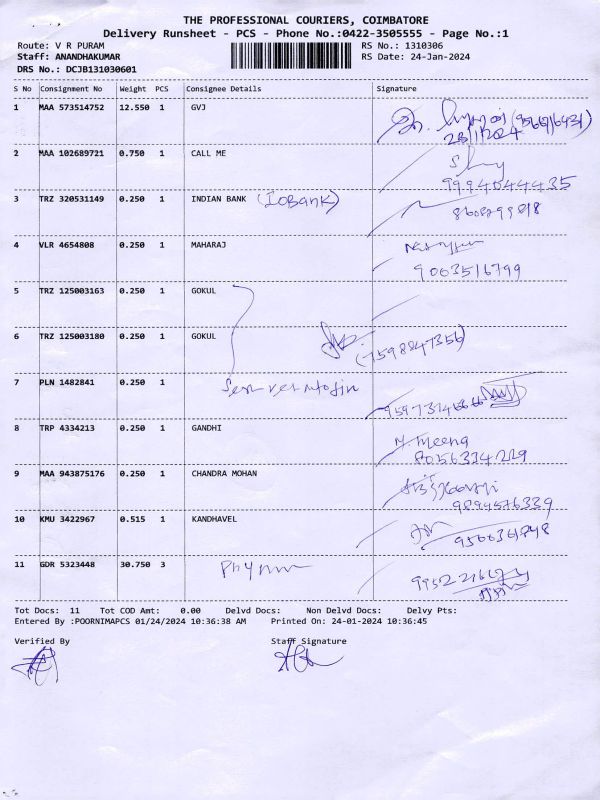 THE PROFESSIONAL COURIERS, COIMBATORE
Delivery Runsheet - PCS - Phone No.:0422-3505555 - Page No.:1
Route: V R PURAM RS No.: 1310306
Staff: ANANDHAKUMAR RS Date: 24-Jan-2024
DRS No.: DCJB131030601
S No Consignment No Weight PCS Consignee Details Signature
1 MAA 573514752 12.550 1 GVJ
2 MAA 102689721 0.750 1 CALL ME
9994044435
3 TRZ 320531149 0.250 1 INDIAN BANK (IOBANK)
4 VLR 4654808 0.250 1 MAHARAJ
9003516799
5 TRZ 125003163 0.250 1 GOKUL
6 TRZ 125003180 0.250 1 GOKUL
(7598847356)
7 PLN 1482841 0.250 1
8 TRP 4334213 0.250 1 GANDHI
M. Meena
8056334229
9 MAA 943875176 0.250 1 CHANDRA MOHAN
9894576339
10 KMU 3422967 0.515 1 KANDHAVEL
11 GDR 5323448 30.750 3
Tot Docs: 11 Tot COD Amt: 0.00 Delvd Docs: Non Delvd Docs: Delvy Pts:
Entered By :POORNIMAPCS 01/24/2024 10:36:38 AM Printed On: 24-01-2024 10:36:45
Verified By Staff Signature